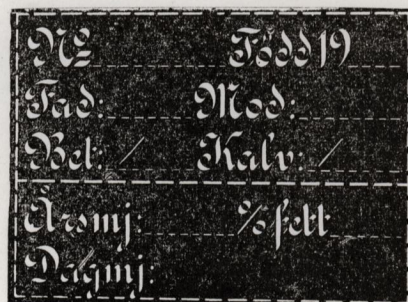 Nº Född 19
Fad: Mod:
Bet: / Kalv: /
Årsmj: % fett
Dagmj: